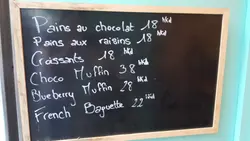 Pains au chocolat 18 Nkd
Pains aux raisins 18 Nkd
Croissants 18 Nkd
Choco Muffin 38 Nkd
Blueberry Muffin 28 Nkd
French Baguette 22 Nkd